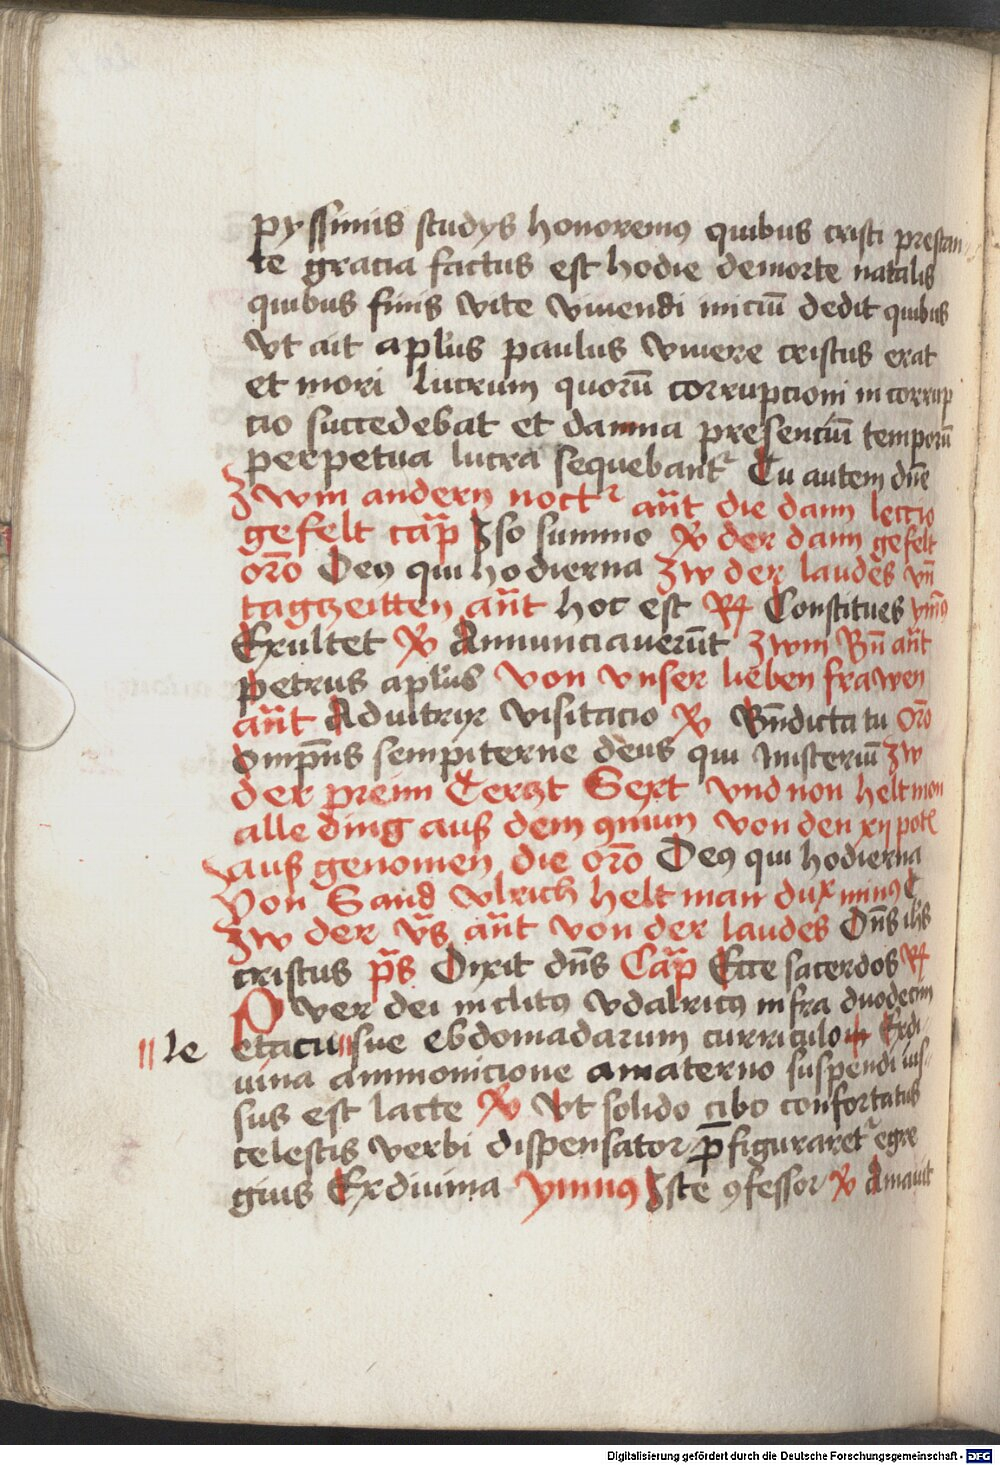 pyssimis studys honoremꝯ quibus cristi prestan-
te gracia factus est hodie demorte natalis
quibus finis vite viuendi iniciū dedit quibus
vt ait apl'us paulus viuere cristus erat
et mori lucrum quorū corrupcioni in corrup
cio succedebat et damna presenciū temporū
perpetua lucra sequebantʳ Tu autem dn̄e
Zwm andern noctʳ an̄t die dann lectio
gefelt cap̄ Iso summo ℣ der dann gefelt
oro̅ Deꝯ qui hodierna Zw der laudes vn̄
tagzeitten an̄t hoc est ℟ Constitues ymꝯ
Exultet ℣ Annunciauerūt Zwm Bn̄ an̄t
petrus apl'us von vnser lieben frawen
an̄t Aduitrix visitacio ℣ Bn̄dicta tu oro̅
omp̄ns sempiterne deus qui misteriū Zw
der preim Tertzt Sext vnd non helt mon
alle ding auß dem ꝯmun von den xii pot
auß genomen die oro̅ Deꝯ qui hodierna
Von Sand Vlrich helt man duxminꝯ
Zw der vs̄ an̄t von der laudes Dn̄s ih's
cristus ps̄ Dixit dn̄s Cap̄ Ecce sacerdos ℟
Pver dei inclitꝯ vdalricꝯ infra duodecim
le etacu sue ebdomadarum curriculo Exdi-
uina ammonicione amaterno suspendi ius-
sus est lacte ℣ Vt solido cibo confortatus
celestis verbi dispensator p̄figuraretʳ egre
gius Exdiuina ymnꝯ Iste ꝯfessor ℣ Amauit
Digitalisierung gefördert durch die Deutsche Forschungsgemeinschaft - DFG